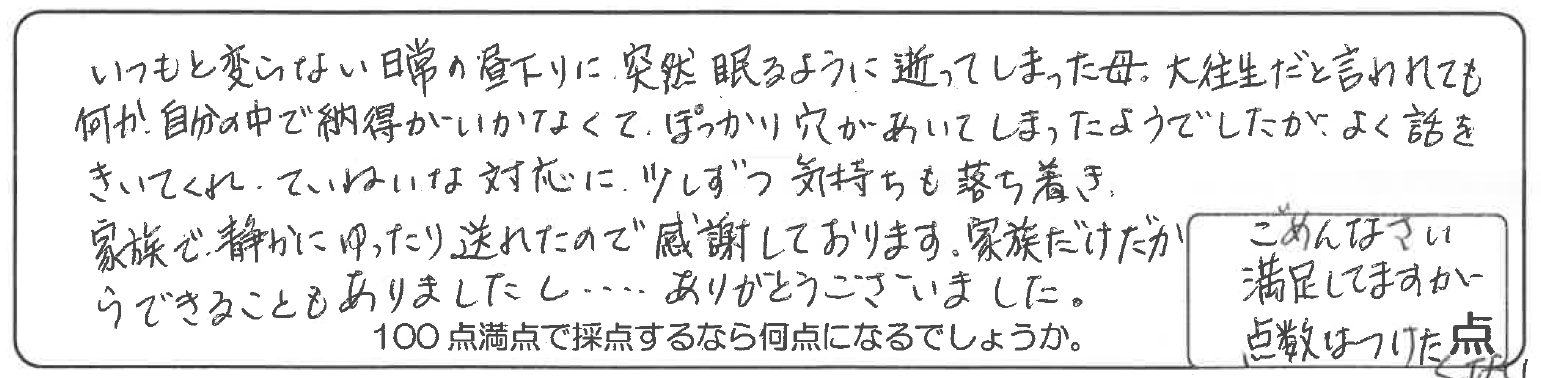 いつもと変らない日常の昼下りに、突然 眠るように逝ってしまった母。大往生だと言われても
何か、自分の中で納得がいかなくて、ぽっかり穴があいてしまったようでしたが、よく話を
きいてくれ、ていねいな対応に、少しずつ 気持ちも落ち着き、
家族で、静かにゆったり送れたので感謝しております。家族だけだか
らできることもありましたし‥‥ ありがとうございました。
100点満点で採点するなら何点になるでしょうか。
ごめんなさい
満足してますが
点数はつけた
くない
点